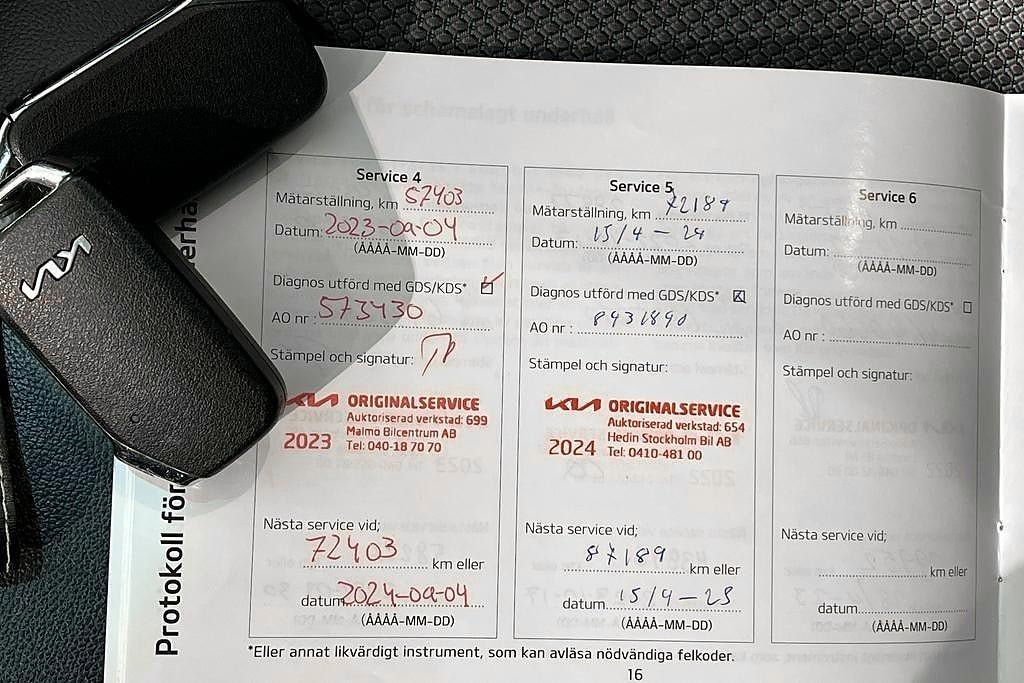 Protokoll för
KIA
Service 4
Mätarställning, km 57403
Datum: 2023-09-04
(ÅÅÅÅ-MM-DD)
Diagnos utförd med GDS/KDS*
AO nr : 573430
Stämpel och signatur:
KIA ORIGINALSERVICE
Auktoriserad verkstad: 699
2023 Malmo Bilcentrum AB
Tel: 040-18 70 70
Nästa service vid;
72403 km eller
datum 2024-09-04
(ÅÅÅÅ-MM-DD)
Service 5
Mätarställning, km 72189
Datum: 15/4 - 24
(ÅÅÅÅ-MM-DD)
Diagnos utförd med GDS/KDS*
AO nr : 8931890
Stämpel och signatur:
KIA ORIGINALSERVICE
Auktoriserad verkstad: 654
2024 Hedin Stockholm Bil AB
Tel: 0410-481 00
Nästa service vid;
87189 km eller
datum 15/4 - 25
(ÅÅÅÅ-MM-DD)
Service 6
Mätarställning, km
Datum:
(ÅÅÅÅ-MM-DD)
Diagnos utförd med GDS/KDS*
AO nr :
Stämpel och signatur:
Nästa service vid;
km eller
datum
(ÅÅÅÅ-MM-DD)
*Eller annat likvärdigt instrument, som kan avläsa nödvändiga felkoder.
16